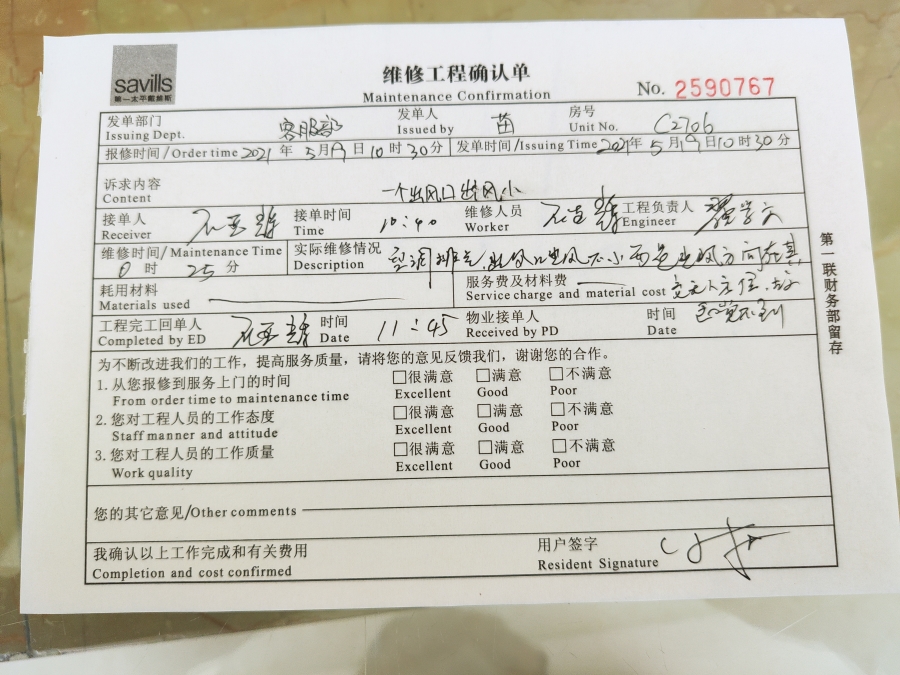 savills
第一太平戴维斯
维修工程确认单
Maintenance Confirmation
No. 2590767
发单部门 客服部 发单人 苗 房号 C2706
Issuing Dept. Issued by Unit No.
报修时间/Order time 2021 年 5 月 19 日 10 时 30 分 发单时间/Issuing Time 2021 年 5 月 19 日 10 时 30 分
诉求内容 一个出风口出风小
Content
接单人 接单时间 10:40 维修人员 工程负责人
Receiver Time Worker Engineer
维修时间/Maintenance Time 实际维修情况
0 时 25 分 Description 空调
耗用材料 服务费及材料费
Materials used Service charge and material cost
工程完工回单人 时间 11:45 物业接单人 时间
Completed by ED Date Received by PD Date
为不断改进我们的工作，提高服务质量，请将您的意见反馈我们，谢谢您的合作。
1. 从您报修到服务上门的时间 □很满意 □满意 □不满意
From order time to maintenance time Excellent Good Poor
2. 您对工程人员的工作态度 □很满意 □满意 □不满意
Staff manner and attitude Excellent Good Poor
3. 您对工程人员的工作质量 □很满意 □满意 □不满意
Work quality Excellent Good Poor
您的其它意见/Other comments
我确认以上工作完成和有关费用 用户签字
Completion and cost confirmed Resident Signature
第一联财务部留存